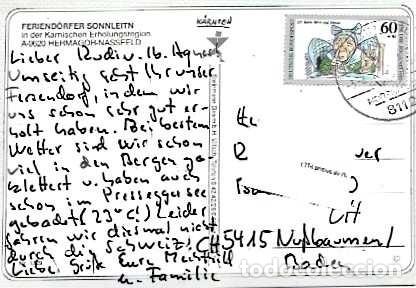 FERIENDÖRFER SONNLEITN
in der Karnischen Erholungsregion
A-9620 HERMAGOR-NASSFELD
KÄRNTEN
Lieber Rudi u. lb. Agnes
Umseitig seht Ihr unser
Feriendorf, in dem wir
uns schon sehr gut er-
holt haben. Bei bestem
Wetter sind wir schon
viel in den Bergen ge-
klettert u. haben auch
schon im Presseggersee
gebadet (23°C!) Leider
fahren wir diesmal nicht
durch die Schweiz!
Liebe Grüße Eure Mechthild
u. Familie
DEUTSCHE BUNDESPOST
60
811
He
R
ver
CH 5415 Nußbaumen/
Baden
todocoleccion.net